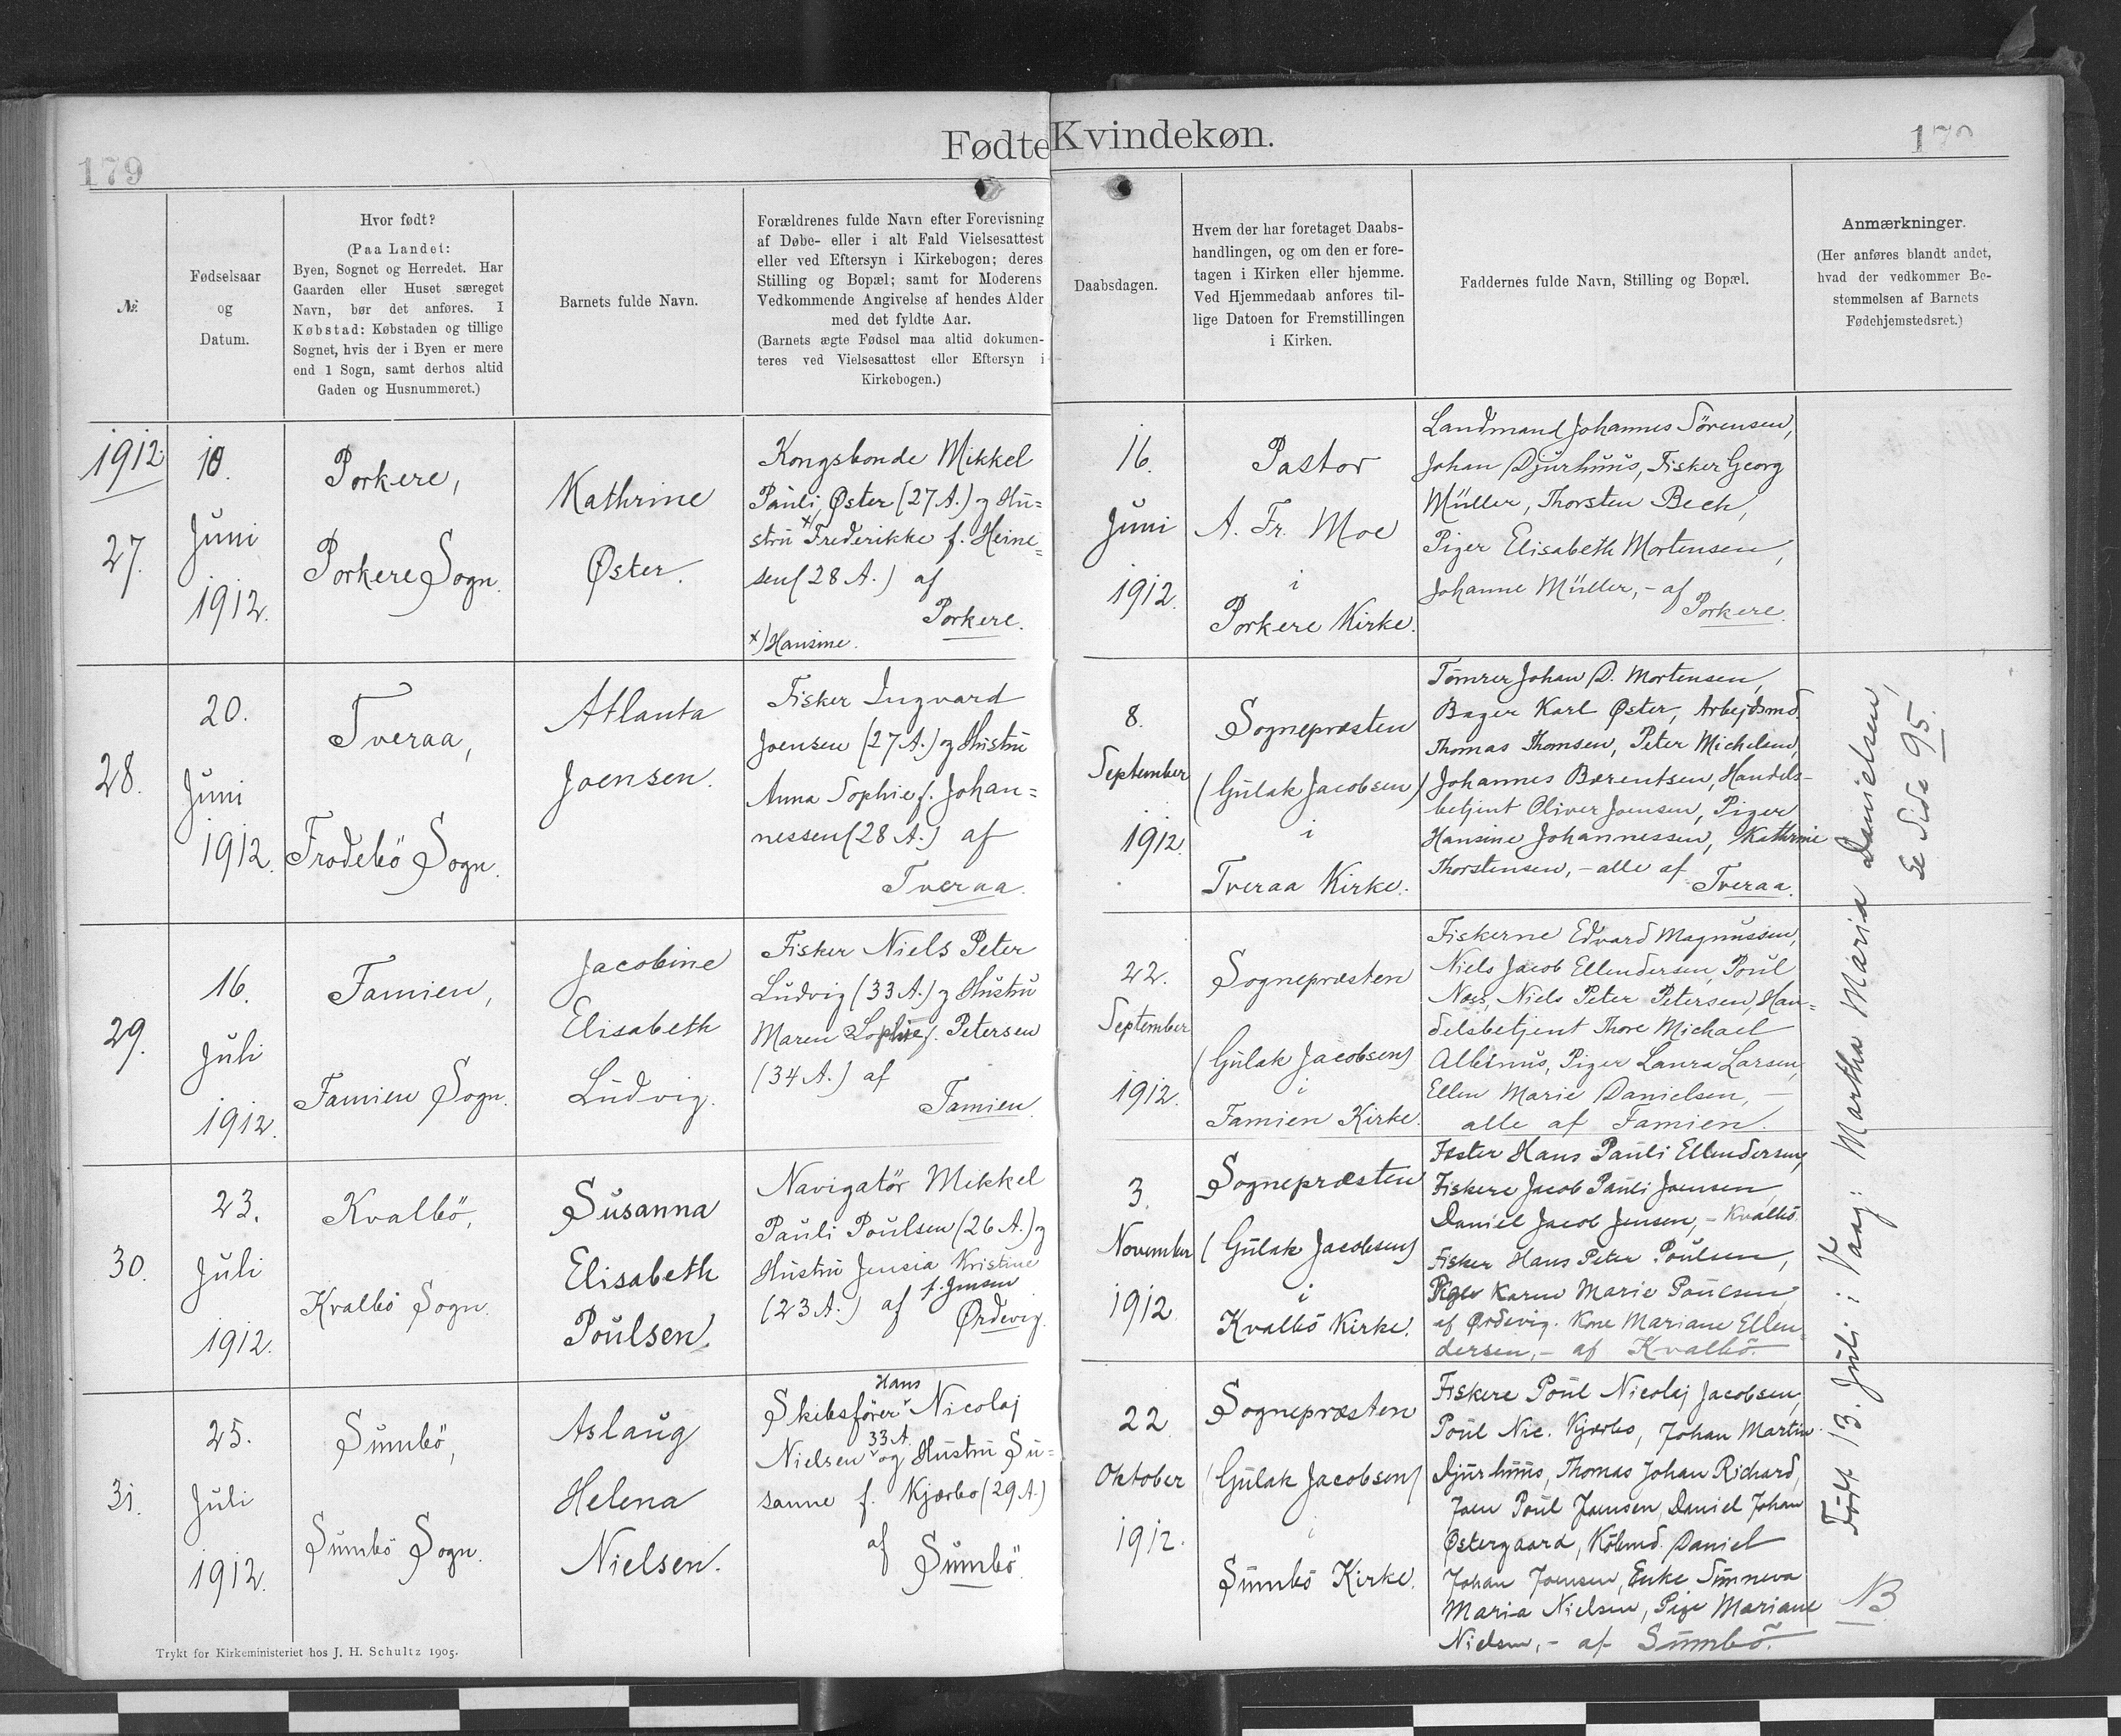 Fødte Kvindekøn.
179
№
Fødselsaar
og
Datum.
Hvor født?
(Paa Landet:
Byen, Sognet og Herredet. Har
Gaarden eller Huset særeget
Navn, bør det anføres. I
Købstad: Købstaden og tillige
Sognet, hvis der i Byen er mere
end 1 Sogn, samt derhos altid
Gaden og Husnummeret.)
Barnets fulde Navn.
Forældrenes fulde Navn efter Forevisning
af Døbe- eller i alt Fald Vielsesattest
eller ved Eftersyn i Kirkebogen; deres
Stilling og Bopæl; samt for Moderens
Vedkommende Angivelse af hendes Alder
med det fyldte Aar.
(Barnets ægte Fødsel maa altid dokumen-
teres ved Vielsesattest eller Eftersyn i
Kirkebogen.)
Daabsdagen.
Hvem der har foretaget Daabs-
handlingen, og om den er fore-
tagen i Kirken eller hjemme.
Ved Hjemmedaab anføres til-
lige Datoen for Fremstillingen
i Kirken.
Faddernes fulde Navn, Stilling og Bopæl.
Anmærkninger.
(Her anføres blandt andet,
hvad der vedkommer Be-
stemmelsen af Barnets
Fødehjemstedsret.)
1912
27.
10.
Juni
1912.
Porkere,
Porkere Sogn.
Kathrine
Øster.
Kongsbonde Mikkel
Pauli Øster (27 A.) og Hu=
stru x) Frederikke f. Heine=
sen (28 A.) af
Porkere.
x) Hansine.
16.
Juni
1912.
Pastor
A. Fr. Moe
i
Porkere Kirke.
Landmand Johannes Sörensen,
Johan Djurhuus, Fisker Georg
Müller, Thorsten Bech,
Piger Elisabeth Mortensen,
Johanne Müller, - af
Porkere.
28.
20.
Juni
1912.
Tveraa,
Frodebö Sogn.
Atlanta
Joensen.
Fisker Ingvard
Joensen (27 A.) og Hustru
Anna Sophie f. Johan=
nessen (28 A.) af
Tveraa.
8.
September
1912.
Sognepræsten
(Gulak Jacobsen)
i
Tveraa Kirke.
Tömrer Johan D. Mortensen,
Bager Karl Øster, Arbejdsmd.
Thomas Thomsen, Peter Michelsen,
Johannes Bærentsen, Handels-
betjent Oliver Joensen, Piger
Hansine Johannessen, Kathrine
Thorstensen, - alle af
Tveraa.
29.
16.
Juli
1912.
Famien,
Famien Sogn.
Jacobine
Elisabeth
Ludvig.
Fisker Niels Peter
Ludvig (33 A.) og Hustru
Maren Sophie f. Petersen
(34 A.) af
Famien.
22.
September
1912.
Sognepræsten
(Gulak Jacobsen)
i
Famien Kirke.
Fiskerne Edvard Magnussen,
Niels Jacob Ellendersen, Poul
Næss, Niels Peter Petersen, Han=
delsbetjent Thore Michael
Albinus, Piger Laura Larsen,
Ellen Marie Danielsen, -
alle af Famien.
30.
23.
Juli
1912.
Kvalbö,
Kvalbö Sogn.
Susanna
Elisabeth
Poulsen.
Navigatør Mikkel
Pauli Poulsen (26 A.) og
Hustru Jensia Kristine
f. Jensen
(23 A.) af
Ørdevig.
3.
November
1912.
Sognepræsten
(Gulak Jacobsen)
i
Kvalbö Kirke.
Fæster Hans Pauli Ellendersen,
Fiskere Jacob Pauli Joensen,
Daniel Jacob Jensen, - Kvalbö.
Fisker Hans Peter Poulsen,
Pige Karen Marie Poulsen
af Ørdevig. Kone Mariane Ellen=
dersen, - af Kvalbö.
31.
25.
Juli
1912.
Sumbö,
Sumbö Sogn.
Aslaug
Helena
Nielsen.
Hans
Skibsfører Nicolaj
33 A.
Nielsen og Hustru Su=
sanne f. Kjærbo (29 A.)
af
Sumbö.
22
Oktober
1912.
Sognepræsten
(Gulak Jacobsen)
i
Sumbö Kirke.
Fiskere Poul Nicolaj Jacobsen,
Poul Nic. Kjærbo, Johan Martin
Djurhuus, Thomas Johan Richard,
Joen Poul Joensen, Daniel Johan
Østergaard, Købmd. Daniel
Johan Joensen, Enke Sunneva
Maria Nielsen, Pige Mariane
Nielsen, - af Sumbö.
Født 13. Juli i Vaag: Martha Maria Danielsen,
Se Side 95.
NB
Trykt for Kirkeministeriet hos J. H. Schultz 1905.